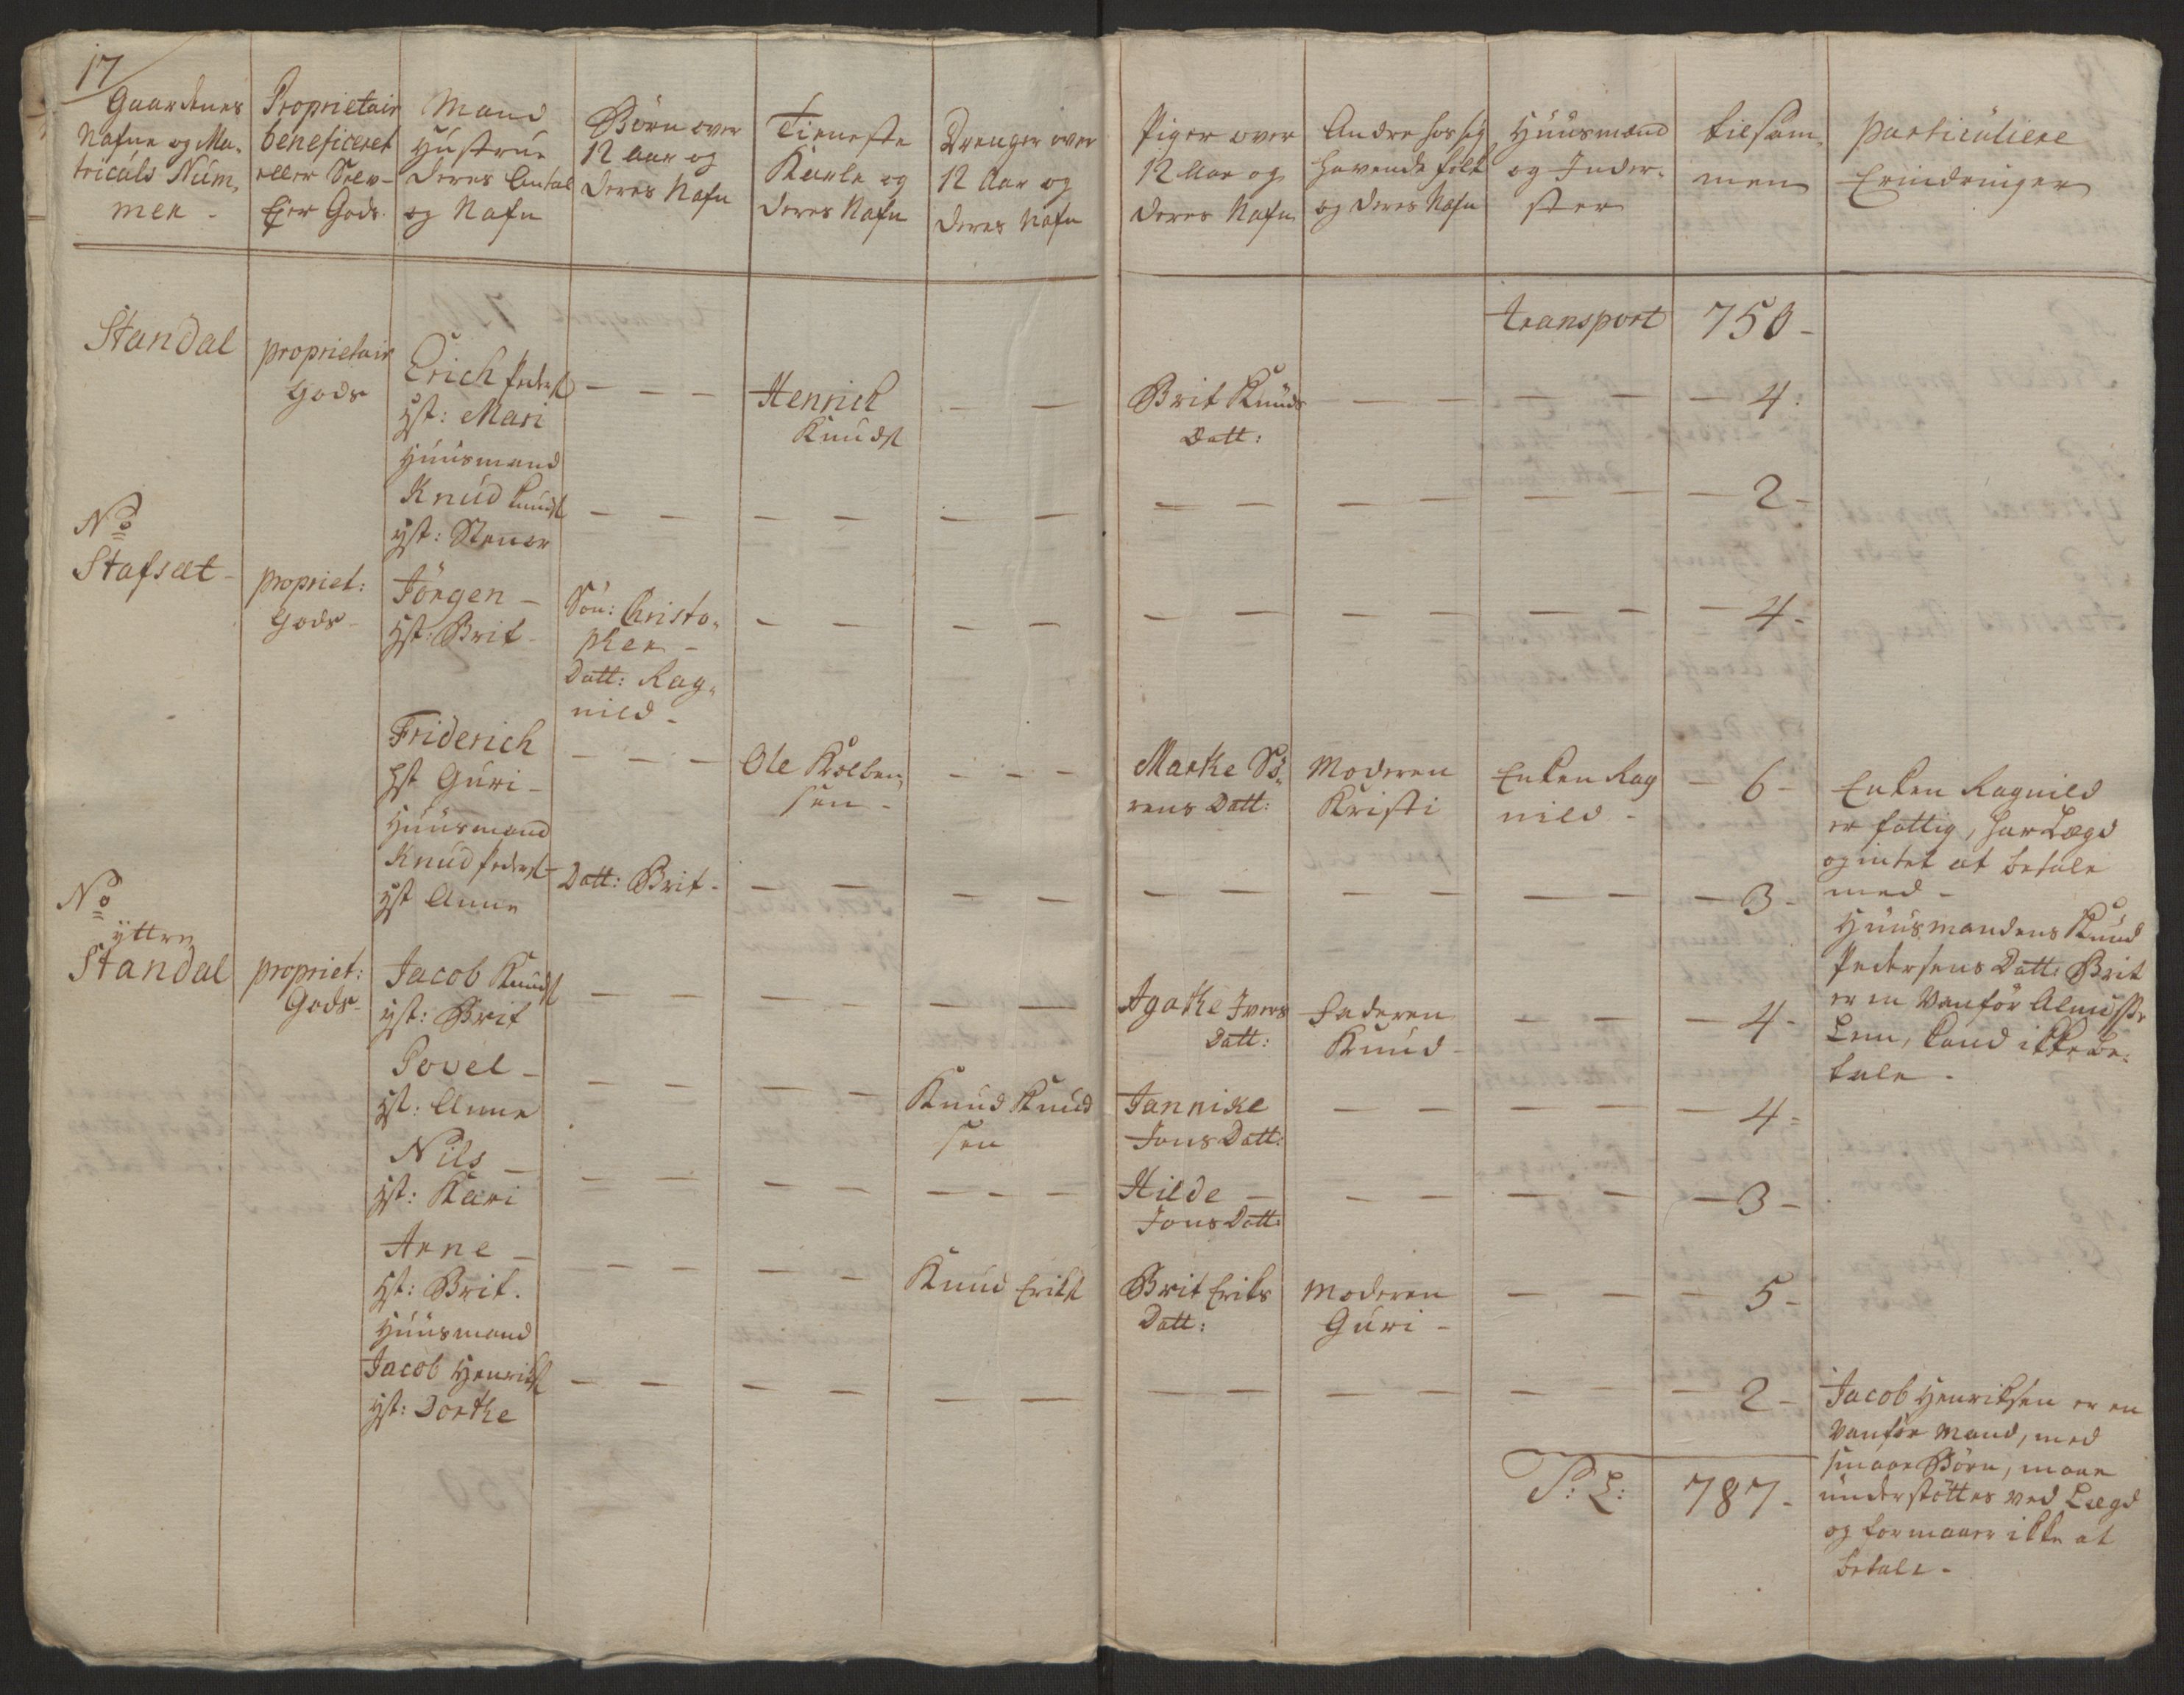 17
Gaardenes
Nafne og Ma-
triculs Num,
mer -
Proprietair
beneficeret
eller Selv-
Ejer Gods.
Mand
Hustrue
deres Antal
og Nafn
Börn over
12 Aar og
deres Nafn
Tieneste
Karle og
deres Nafn
Drenger over
12 Aar og
deres Nafn
Piger over
12 Aar og
deres Nafn
Andre hos sig
havende folk
og deres Nafn
Huusmænd
og Inder-
ster
tilsam,
men
particuliere
Erindringer
transport 750 -
Standal
proprietair
Gods
Erich Peders
Hst: Mari
Henrich
Knuds
Brit Knuds
Datt:
4.
Huusmand
Knud Knuds
Hst: Stener
2 -
No
Stafsæt -
propriet:
Gods -
Jörgen -
Hst: Brit -
Sön: Christo-
pher -
Datt: Rag-
nild -
4 -
Friderich
Hst Guri -
Ole Kolben,
sen -
Marte Sö-
rens Datt:
Moderen
Kristi
Enken Rag
nild -
6 -
Enken Ragnild
er fattig, har Lægd
og intet at betale
med -
Huusmand
Knud Peders -
Hst Anne
Datt: Brit -
3 -
Huusmandens Knud
Pedersens Datt: Brit
er en Vanför Almisse
Lem, kand ikke be-
tale -
No
yttre
Standal
propriet:
Gods -
Jacob Knuds
Hst: Brit
Agathe Ivers
Datt:
Faderen
Knud -
4 -
Povel -
Hst: Anne
Knud Knud
sen
Jannike
Jons Datt:
4 -
Nils -
Hst: Kari
Hilde -
Jons Datt:
3 -
Arne -
Hst: Brit.
Knud Eriks
Brit Eriks
Datt:
Moderen
Guri -
5 -
Huusmand
Jacob Henriks
Hst: Dorthe
2 -
Jacob Henriksen er en
vanför Mand, med
smaae Börn, maae
understöttes ved Lægd
og formaaer ikke at
betale -
S: L: 787 -